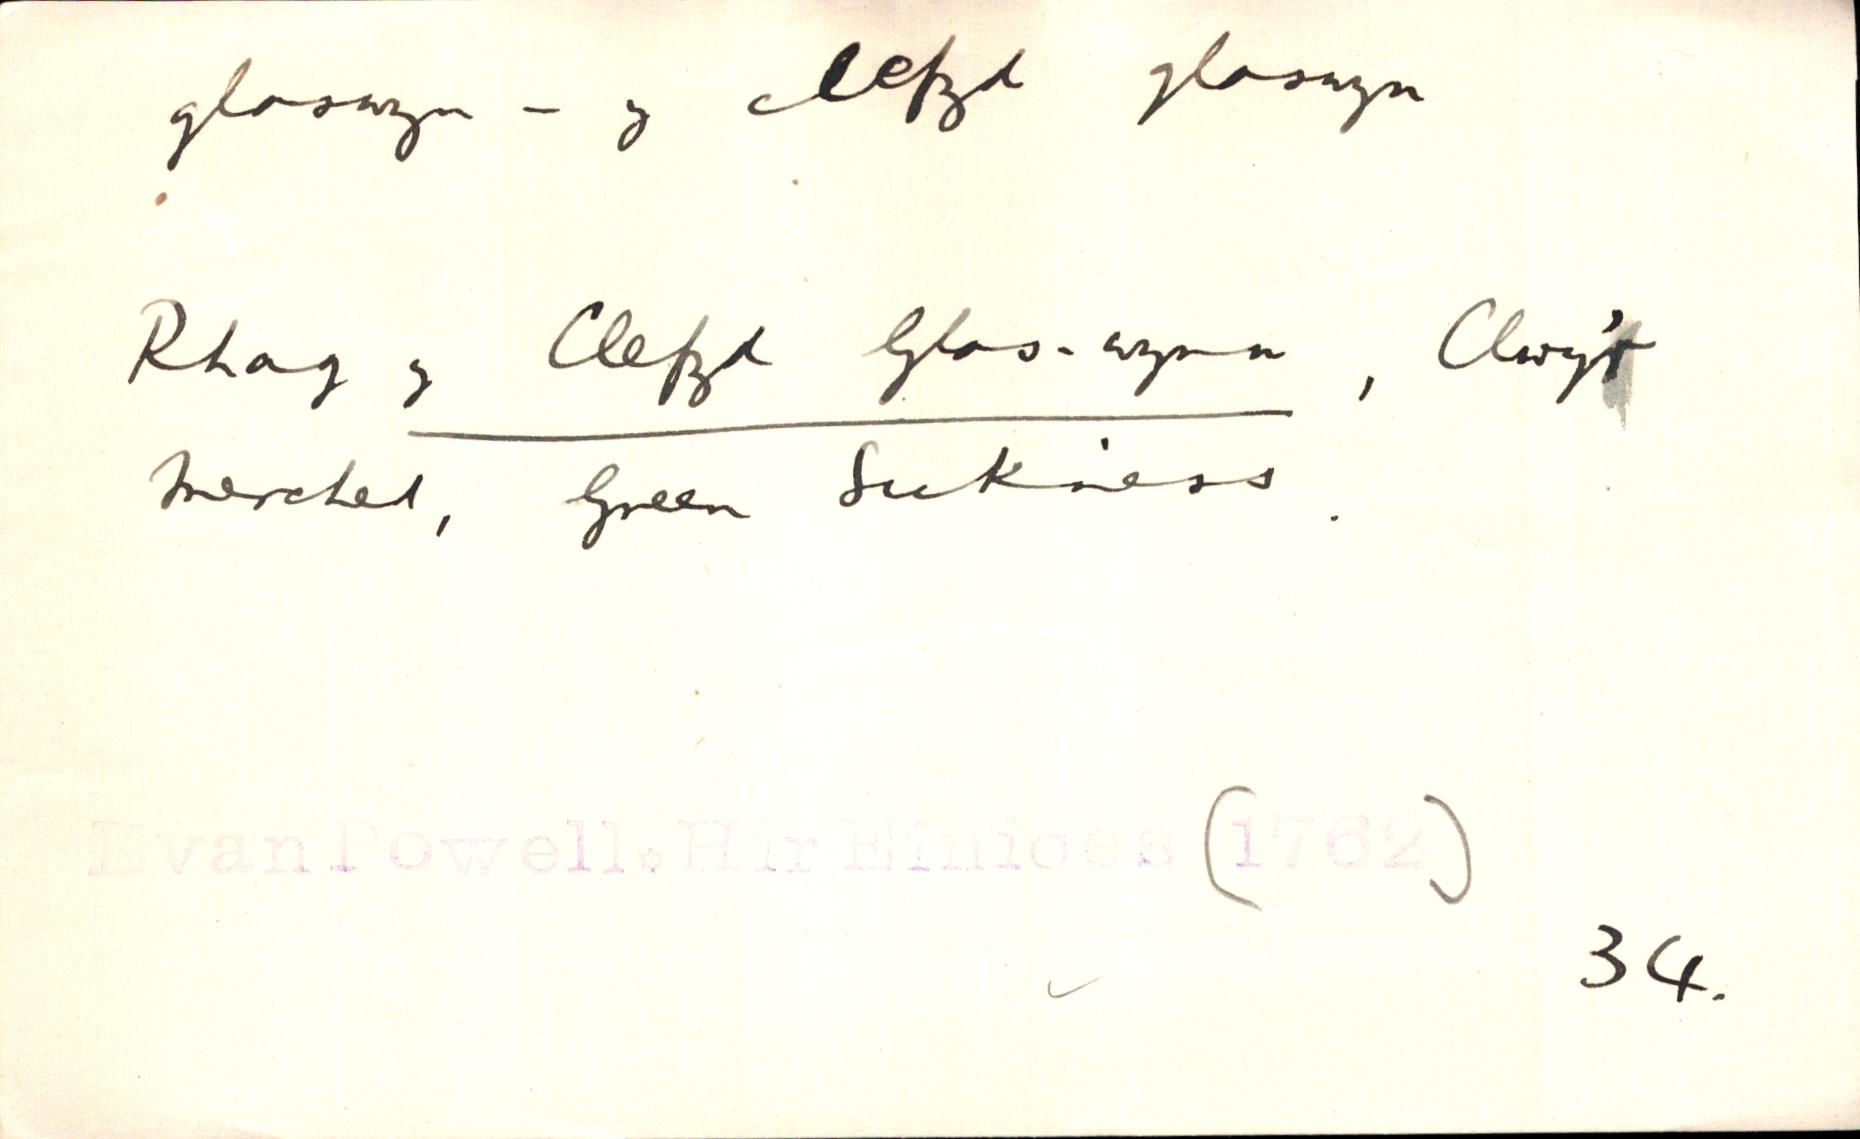 glaswyn – y clefyd glaswyn
Rhag y Clefyd Glas-wynn, Clwy'r
Merched, Green Sickness.
Evan Powell: Hir Einioes (1762)
34.